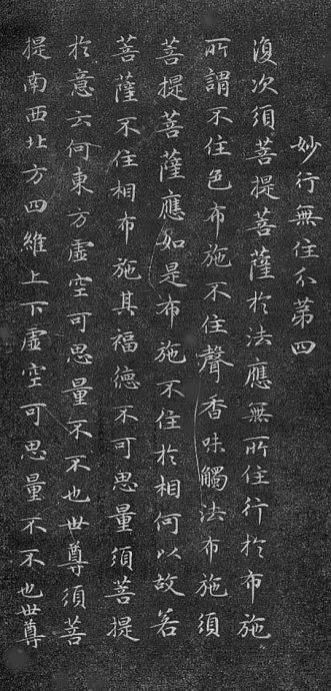 妙行無住分第四
復次須菩提菩薩於法應無所住行於布施
所謂不住色布施不住聲香味觸法布施須
菩提菩薩應如是布施不住於相何以故若
菩薩不住相布施其福德不可思量須菩提
於意云何東方虛空可思量不不也世尊須菩
提南西北方四維上下虛空可思量不不也世尊